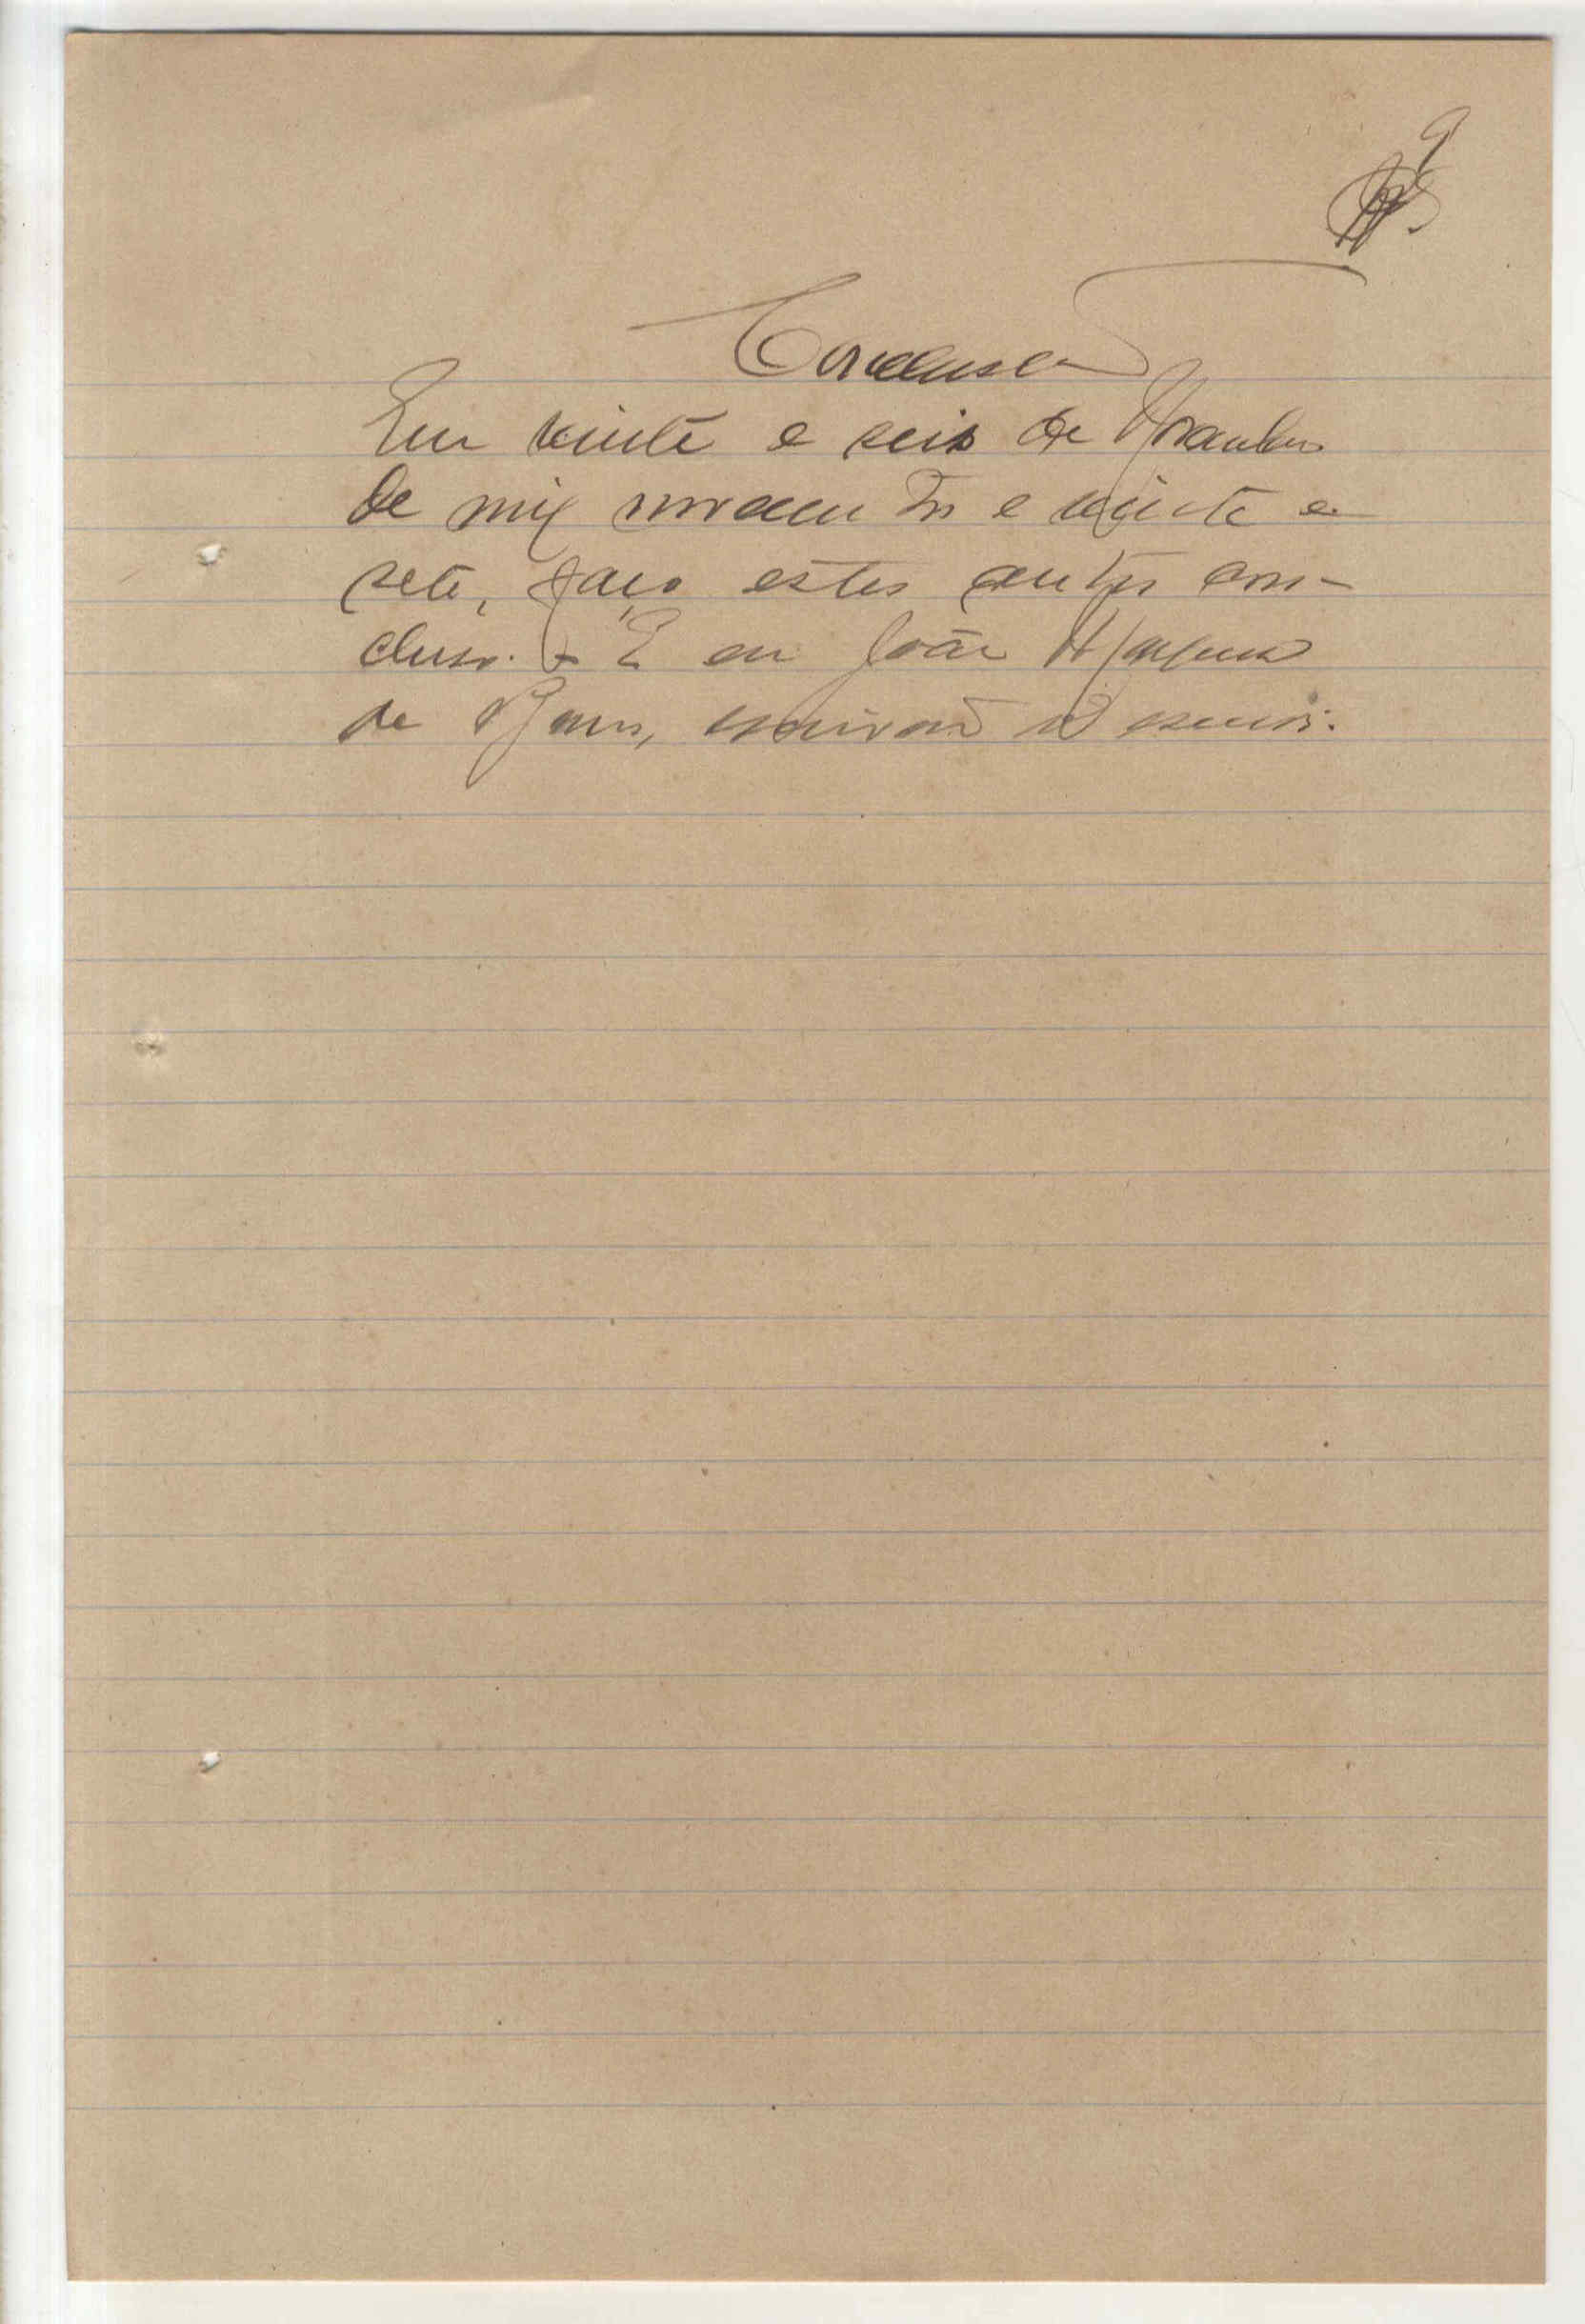 9
Conclusão
Em vinte e seis de Novembro
de mil novecentos e vinte e
sete, faço estes autos con-
clusos. E eu João Marques
de Barros, escrivão o escrevi.